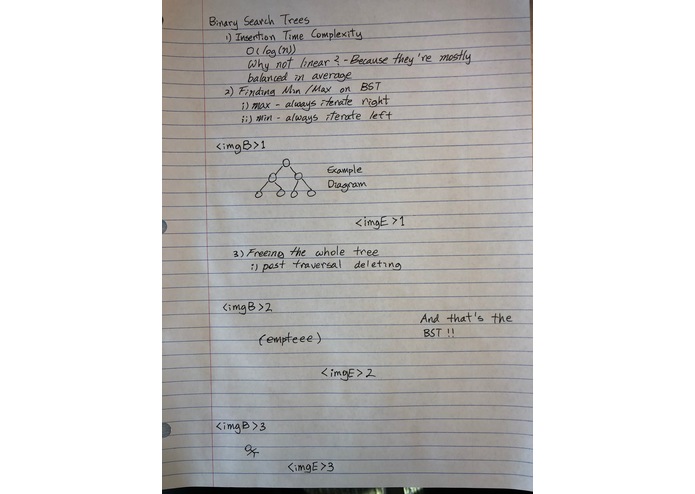 Binary Search Trees
1) Insertion Time Complexity
O(log(n))
Why not linear? - Because they're mostly
balanced in average
2) Finding Min/Max on BST
i) max - always iterate right
ii) min - always iterate left
<imgB>1
Example
Diagram
<imgE>1
3) Freeing the whole tree
i) post traversal deleting
<imgB>2
And that's the
BST !!
(empteee)
<imgE>2
<imgB>3
<imgE>3